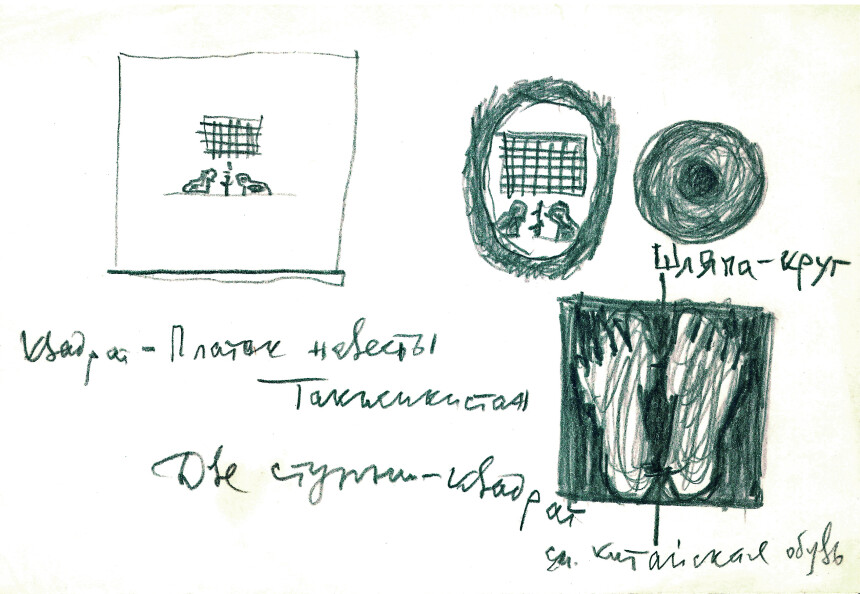 Шляпа-круг
Квадрат - Платок невесты
Таджикистан
Две ступни - квадрат
см. китайская обувь